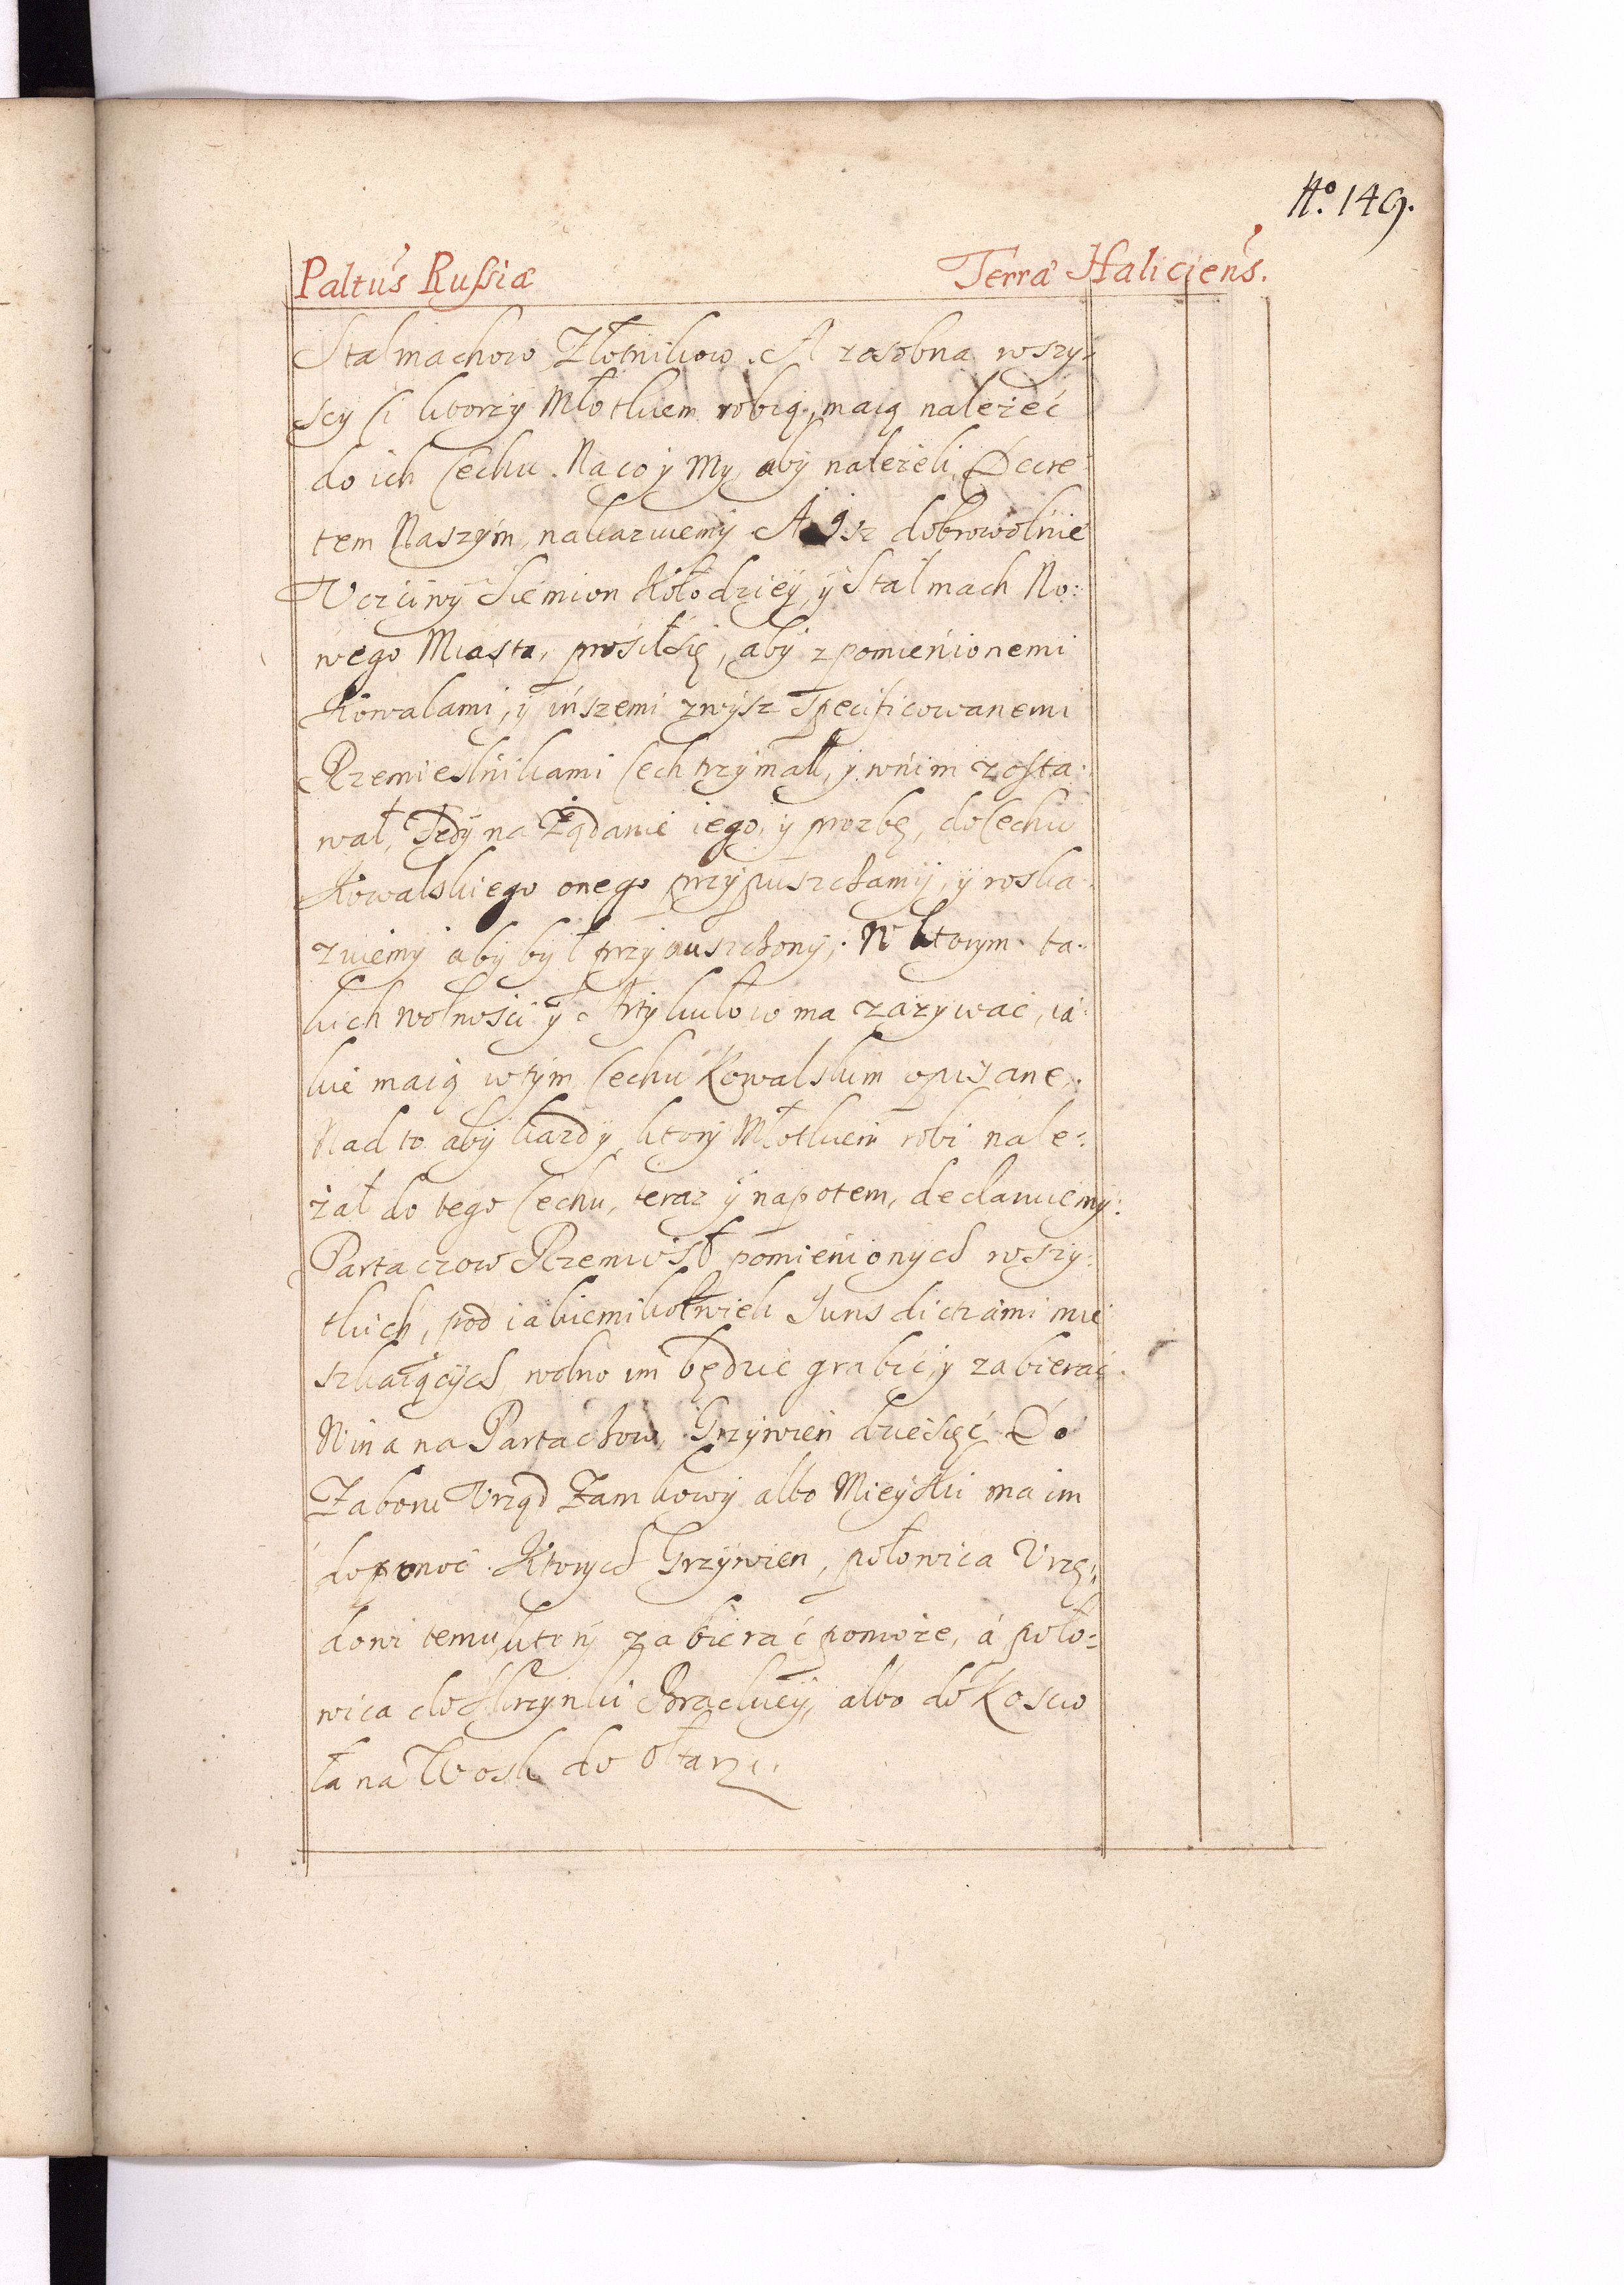 No. 149.
Paltus Russiæ Terræ Haliciens.
Stalmachow, Złotnikow. A zosobna wszy=
scy Ci ktorzy Młotkiem robią, maią należeć
do ich Cechu. Na co y My, aby należeli, Decre=
tem Naszym, nakazuiemy. A isz dobrowolnie
Uczciwy Siemion Kołodziey, y Stalmach No=
wego Miasta, prosił się, aby z pomienionemi
Kowalami, y inszemi zwysz specificowanemi
Rzemieslnikami Cech trzymał, y w nim zosta=
wał, Tedy na Żądanie iego, y prozbę, do Cechu
Kowalskiego onego przypuszchamy, y roska=
zuiemy aby był przypuszchony; W ktorym ta=
kich wolności y Artykułow ma zazywać, ia=
kie maią w tym Cechu Kowalskim opisane.
Nad to aby kazdy, ktory Młotkiem robi nale=
żał do tego Cechu, teraz y napotem, declaruiemy:
Partaczow Rzemiosł pomienionych wszy=
tkich, pod iakiemikolwiek Jurisdictiami mie
szkaiących, wolno im będzie grabić, y zabierać.
Wina na Partachow, Grzywien dziesięć. Do
Zaboru Urząd Zamkowy albo Mieyski ma im
dopomoc. Ktorych Grzywien, połowica Urzę=
dowi temu, ktory zabierać pomoże, á poło=
wica do Skrzynki Brackiey, albo do Koscio
ła na Wosk do Ołtarzu.